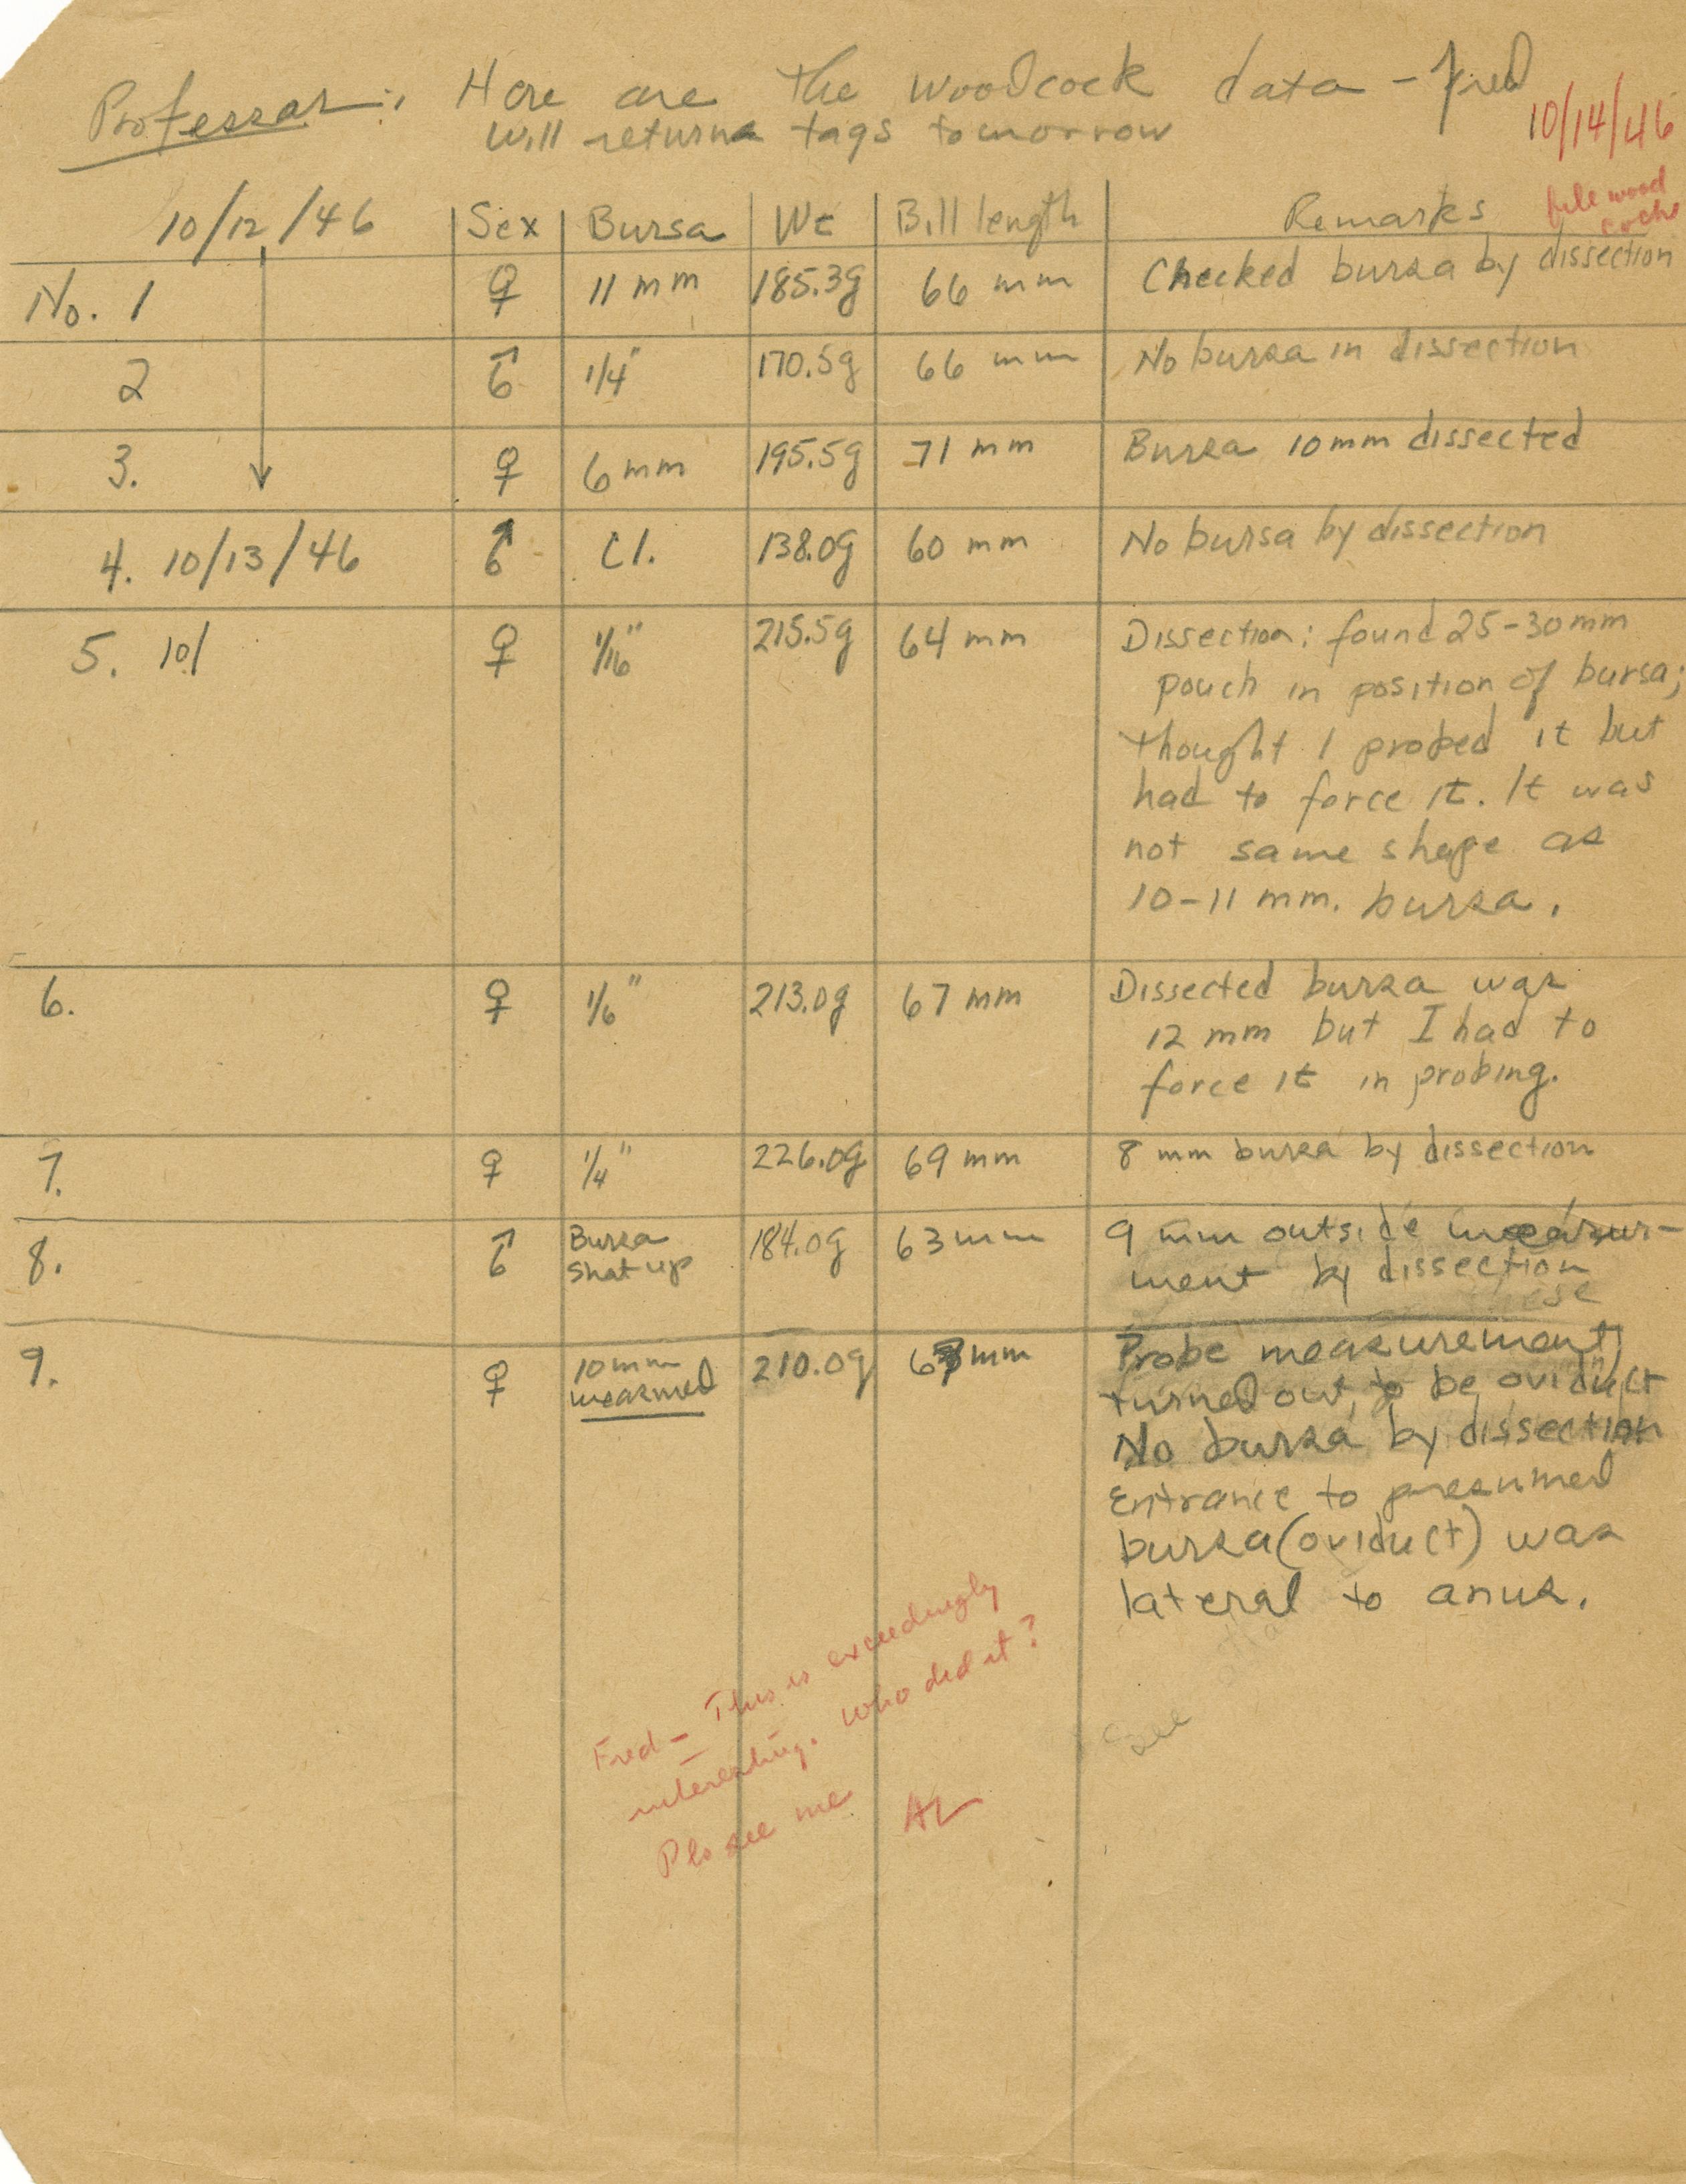 Professor: Here are the woodcock data - Fred
Will return tags tomorrow
10/14/46
file wood
cocks
10/12/46 Sex Bursa Wt Bill length Remarks
No. 1 ♀ 11 mm 185.3g 66 mm Checked bursa by dissection
2 ♂ 1/4" 170.5g 66 mm No bursa in dissection
3. ♀ 6 mm 195.5g 71 mm Bursa 10mm dissected
4. 10/13/46 ♂ Cl. 138.0g 60 mm No bursa by dissection
5. 10/ ♀ 1/16" 215.5g 64 mm Dissection: found 25-30mm
pouch in position of bursa;
thought I probed it but
had to force it. It was
not same shape as
10-11 mm. bursa.
6. ♀ 1/6" 213.0g 67 mm Dissected bursa was
12 mm but I had to
force it in probing.
7. ♀ 1/4" 226.0g 69 mm 8 mm bursa by dissection
8. ♂ Bursa
shot up 184.0g 63 mm 9 mm outside measur-
ment by dissection
9. ♀ 10 mm
measured 210.0g mm Probe measurement
turned out to be oviduct
No bursa by dissection
Entrance to presumed
bursa (oviduct) was
lateral to anus.
See
Fred - This is exceedingly
interesting. Who did it?
Pls see me AL